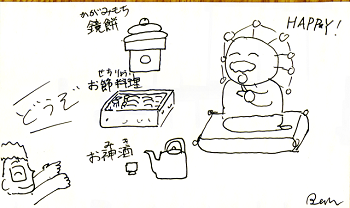 かがみもち
鏡餅
HAPPY!
せちりょうり
お節料理
どうぞ
みき
お神酒